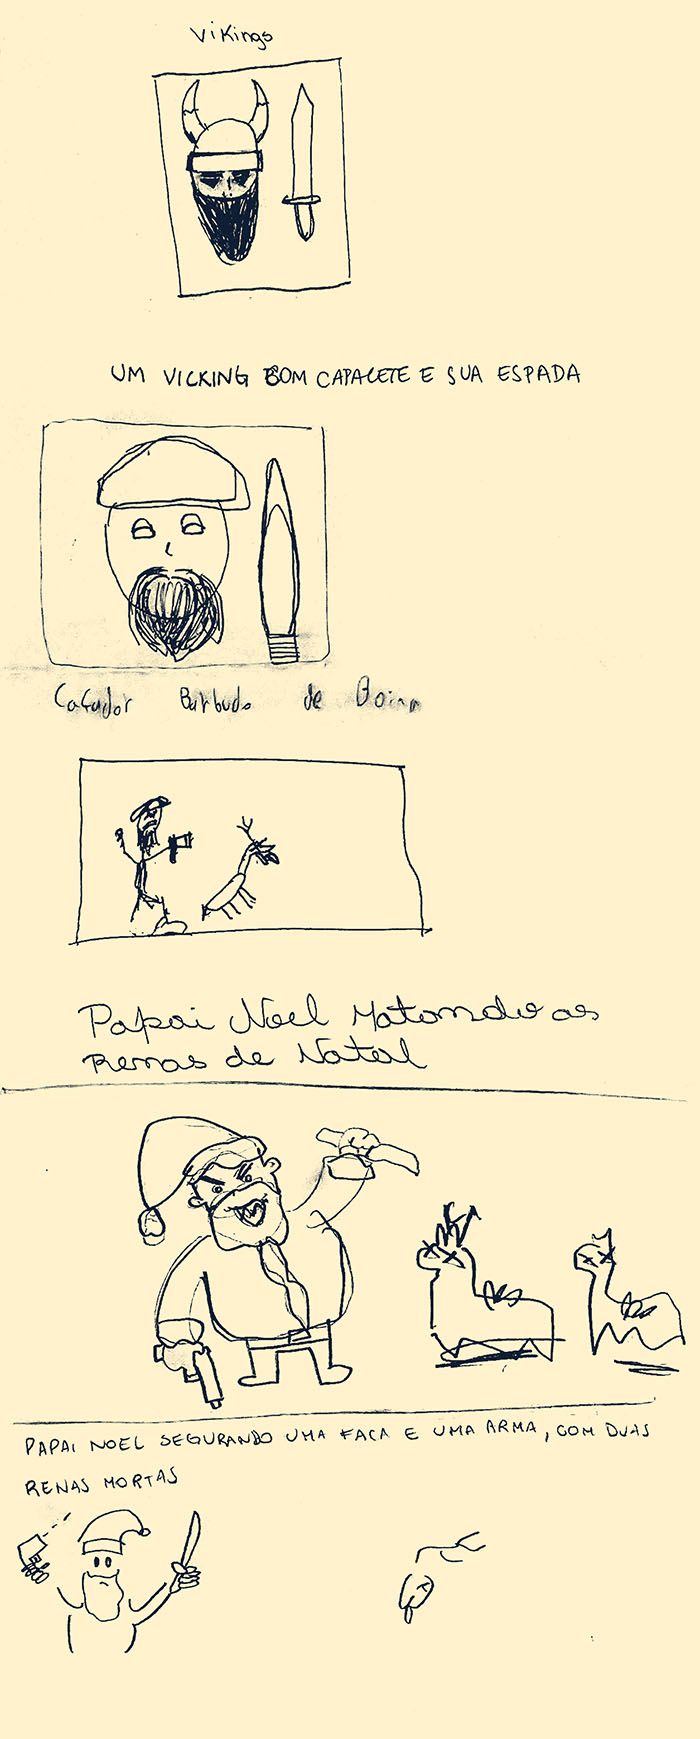 Vikings
UM VICKING BOM CAPACETE E SUA ESPADA
Caçador Barbudo de Boina
Papai Noel Matando as
Renas de Natal
PAPAI NOEL SEGURANDO UMA FACA E UMA ARMA, COM DUAS
RENAS MORTAS